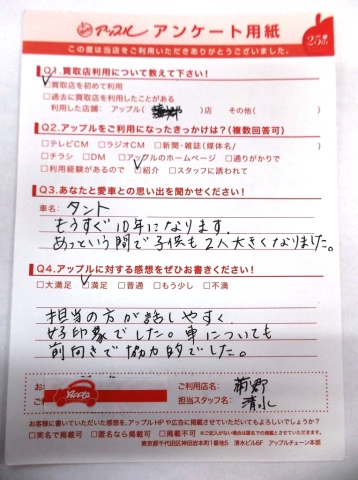 アップル アンケート用紙 25th
この度は当店をご利用いただきありがとうございました。
Q1.買取店利用について教えて下さい!
□買取店を初めて利用
□過去に買取店を利用したことがある
利用した店舗: アップル( )店 その他( )
Q2.アップルをご利用になったきっかけは?(複数回答可)
□テレビCM □ラジオCM □新聞・雑誌(媒体名/ )
□チラシ □DM □アップルのホームページ □通りがかりで
□利用経験があるので □紹介 □スタッフに誘われて
Q3.あなたと愛車との思い出を聞かせください!
車名: タント
もうすぐ10年になります.
あっという間で子供も2人大きくなりました。
Q4.アップルに対する感想をぜひお書きください!
□大満足 □満足 □普通 □もう少し □不満
担当の方が話しやすく、
好印象でした。車についても
前向きで協力的でした。
お
Apple
ご利用店名: 蒲郡
担当スタッフ名: 清水
お客様に書いていただいた感想を、アップルHPや広告に掲載させていただいてもよろしいでしょうか?
□実名で掲載可 □匿名なら掲載可 □掲載不可 ※ご記入がない場合は匿名での掲載とさせていただきます。
東京都千代田区神田岩本町1番地5 清水ビル6F アップルチェーン本部